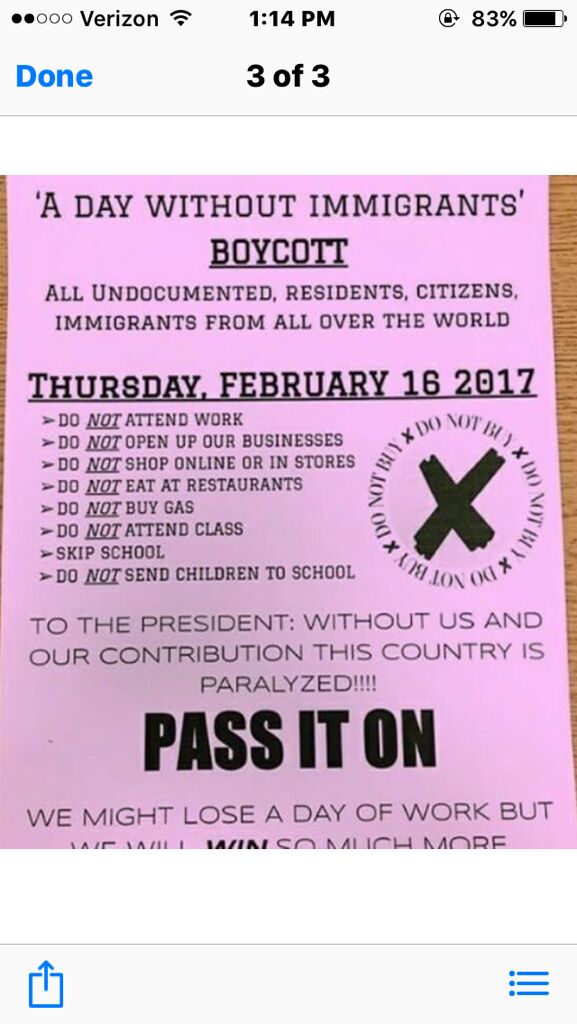 Verizon 1:14 PM 83%
Done 3 of 3
'A DAY WITHOUT IMMIGRANTS'
BOYCOTT
ALL UNDOCUMENTED, RESIDENTS, CITIZENS,
IMMIGRANTS FROM ALL OVER THE WORLD
THURSDAY, FEBRUARY 16 2017
➤DO NOT ATTEND WORK
➤DO NOT OPEN UP OUR BUSINESSES
➤DO NOT SHOP ONLINE OR IN STORES
➤DO NOT EAT AT RESTAURANTS
➤DO NOT BUY GAS
➤DO NOT ATTEND CLASS
➤SKIP SCHOOL
➤DO NOT SEND CHILDREN TO SCHOOL
DO NOT BUY X DO NOT BUY X DO NOT BUY X DO NOT BUY X
X
TO THE PRESIDENT: WITHOUT US AND
OUR CONTRIBUTION THIS COUNTRY IS
PARALYZED!!!!
PASS IT ON
WE MIGHT LOSE A DAY OF WORK BUT
WE WILL WIN SO MUCH MORE